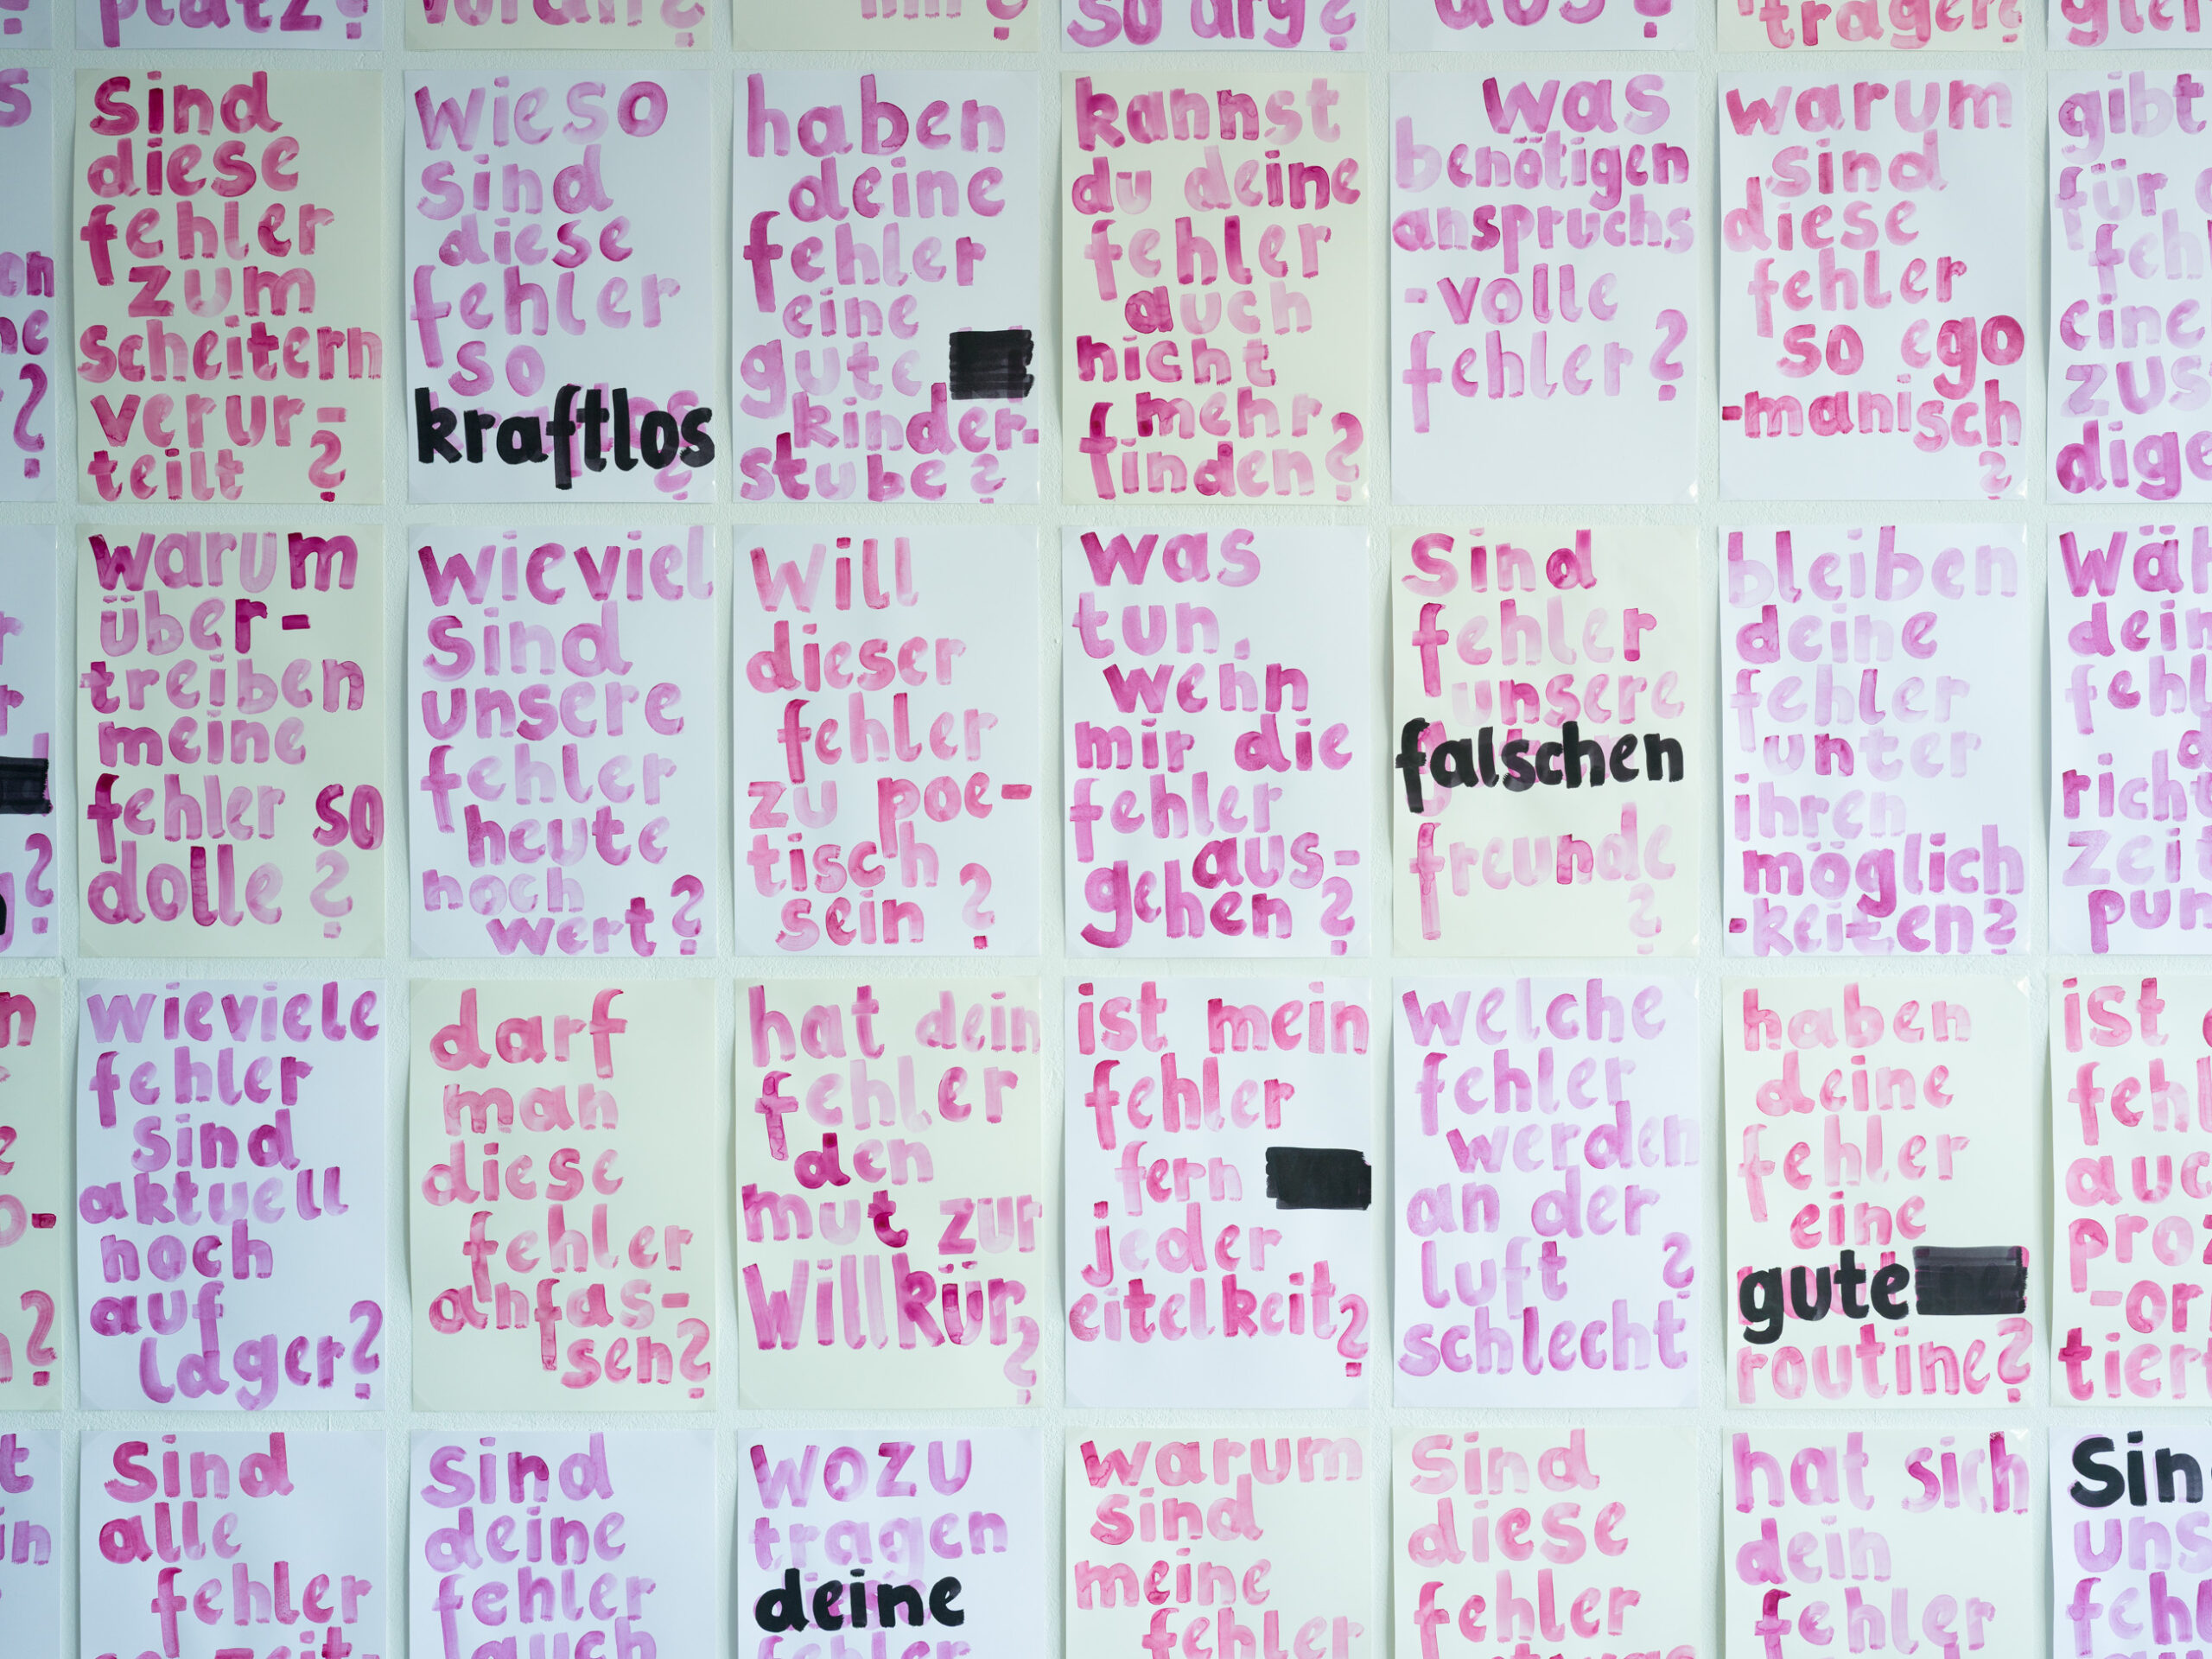 platz?
so arg?
träger?
sind
diese
fehler
zum
scheitern
verur-
teilt ?
wieso
sind
diese
fehler
so
kraftlos
?
haben
deine
fehler
eine
gute
kinder-
stube?
kannst
du deine
fehler
auch
nicht
mehr
finden?
was
benötigen
anspruchs
-volle
fehler?
warum
sind
diese
fehler
so ego
-manisch
?
gibt
für
eine
zus
dige
warum
über-
treiben
meine
fehler so
dolle ?
wieviel
sind
unsere
fehler
heute
noch
wert?
will
dieser
fehler
zu poe-
tisch
sein ?
was
tun,
wenn
mir die
fehler
aus-
gehen ?
sind
fehler
unsere
falschen
freunde
?
bleiben
deine
fehler
unter
ihren
möglich
-keiten?
wäh
dein
fehl
richt
zeit
pun
wieviele
fehler
sind
aktuell
noch
auf
lager?
darf
man
diese
fehler
anfas-
sen?
hat dein
fehler
den
mut zur
willkür
?
ist mein
fehler
fern
jeder
eitelkeit?
welche
fehler
werden
an der
luft ?
schlecht
haben
deine
fehler
eine
gute
routine?
ist
feh
auc
proz
-or
tiert
sind
alle
fehler
sind
deine
fehler
auch
wozu
tragen
deine
fehler
warum
sind
meine
fehler
sind
diese
fehler
etwas
hat sich
dein
fehler
Sin
uns
feh